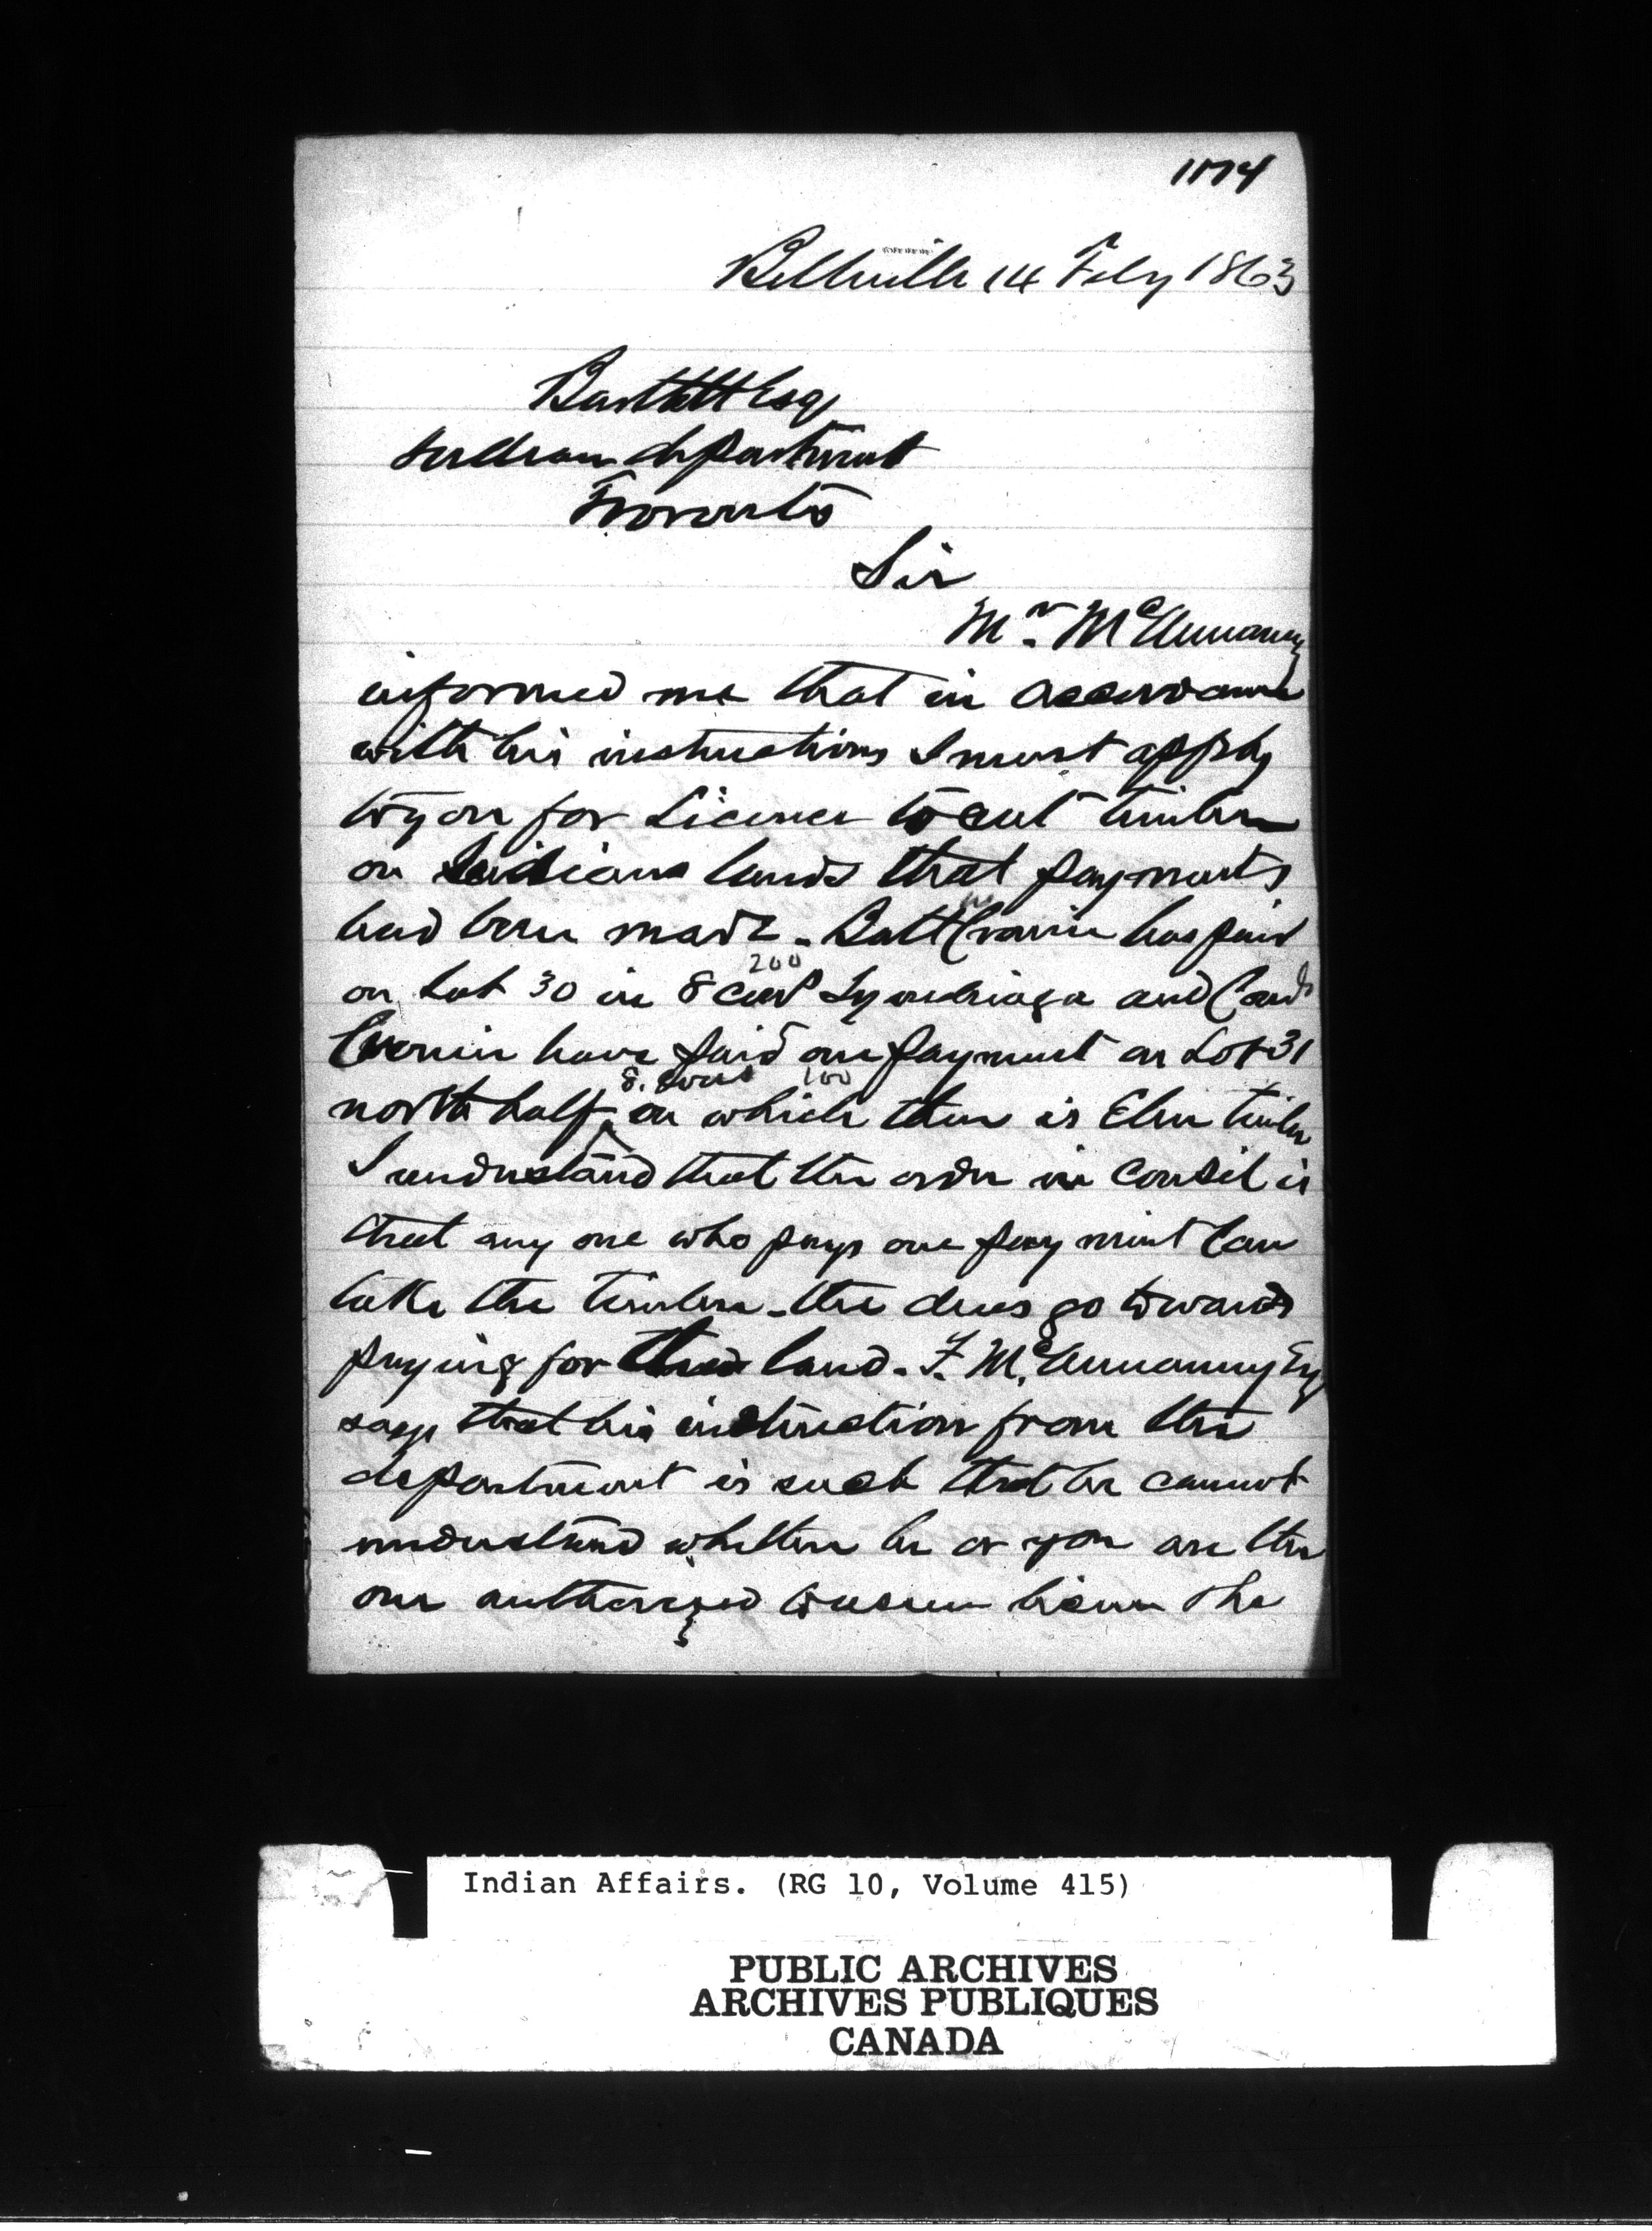 1174
Bellville 14 Feby 1863
Bartlett Esq
Indian department
Toronto
Sir
Mr. McAnnany
informed me that in accordance
with his instructions I must apply
to you for Licence to cut timber
on Indians lands that payments
had been made. Batt Cronin has paid
200
on Lot 30 in 8 con Tyendinaga and
Cronin have paid one payment on Lot 31
8. con 100
north half on which there is Elm timber
I understand that the order in Consil is
that any one who pays one payment Can
take the timber - the dues go towards
paying for the land. F. McAnnany Esq
says that his instruction from the
department is such that he cannot
understand whether he or you are the
one authorized to issue The
Indian Affairs. (RG 10, Volume 415)
PUBLIC ARCHIVES
ARCHIVES PUBLIQUES
CANADA